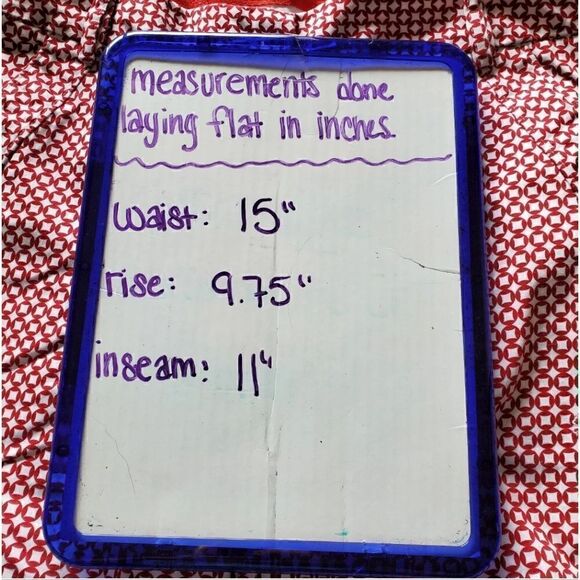 measurements done
laying flat in inches.
waist: 15"
rise: 9.75"
inseam: 11"